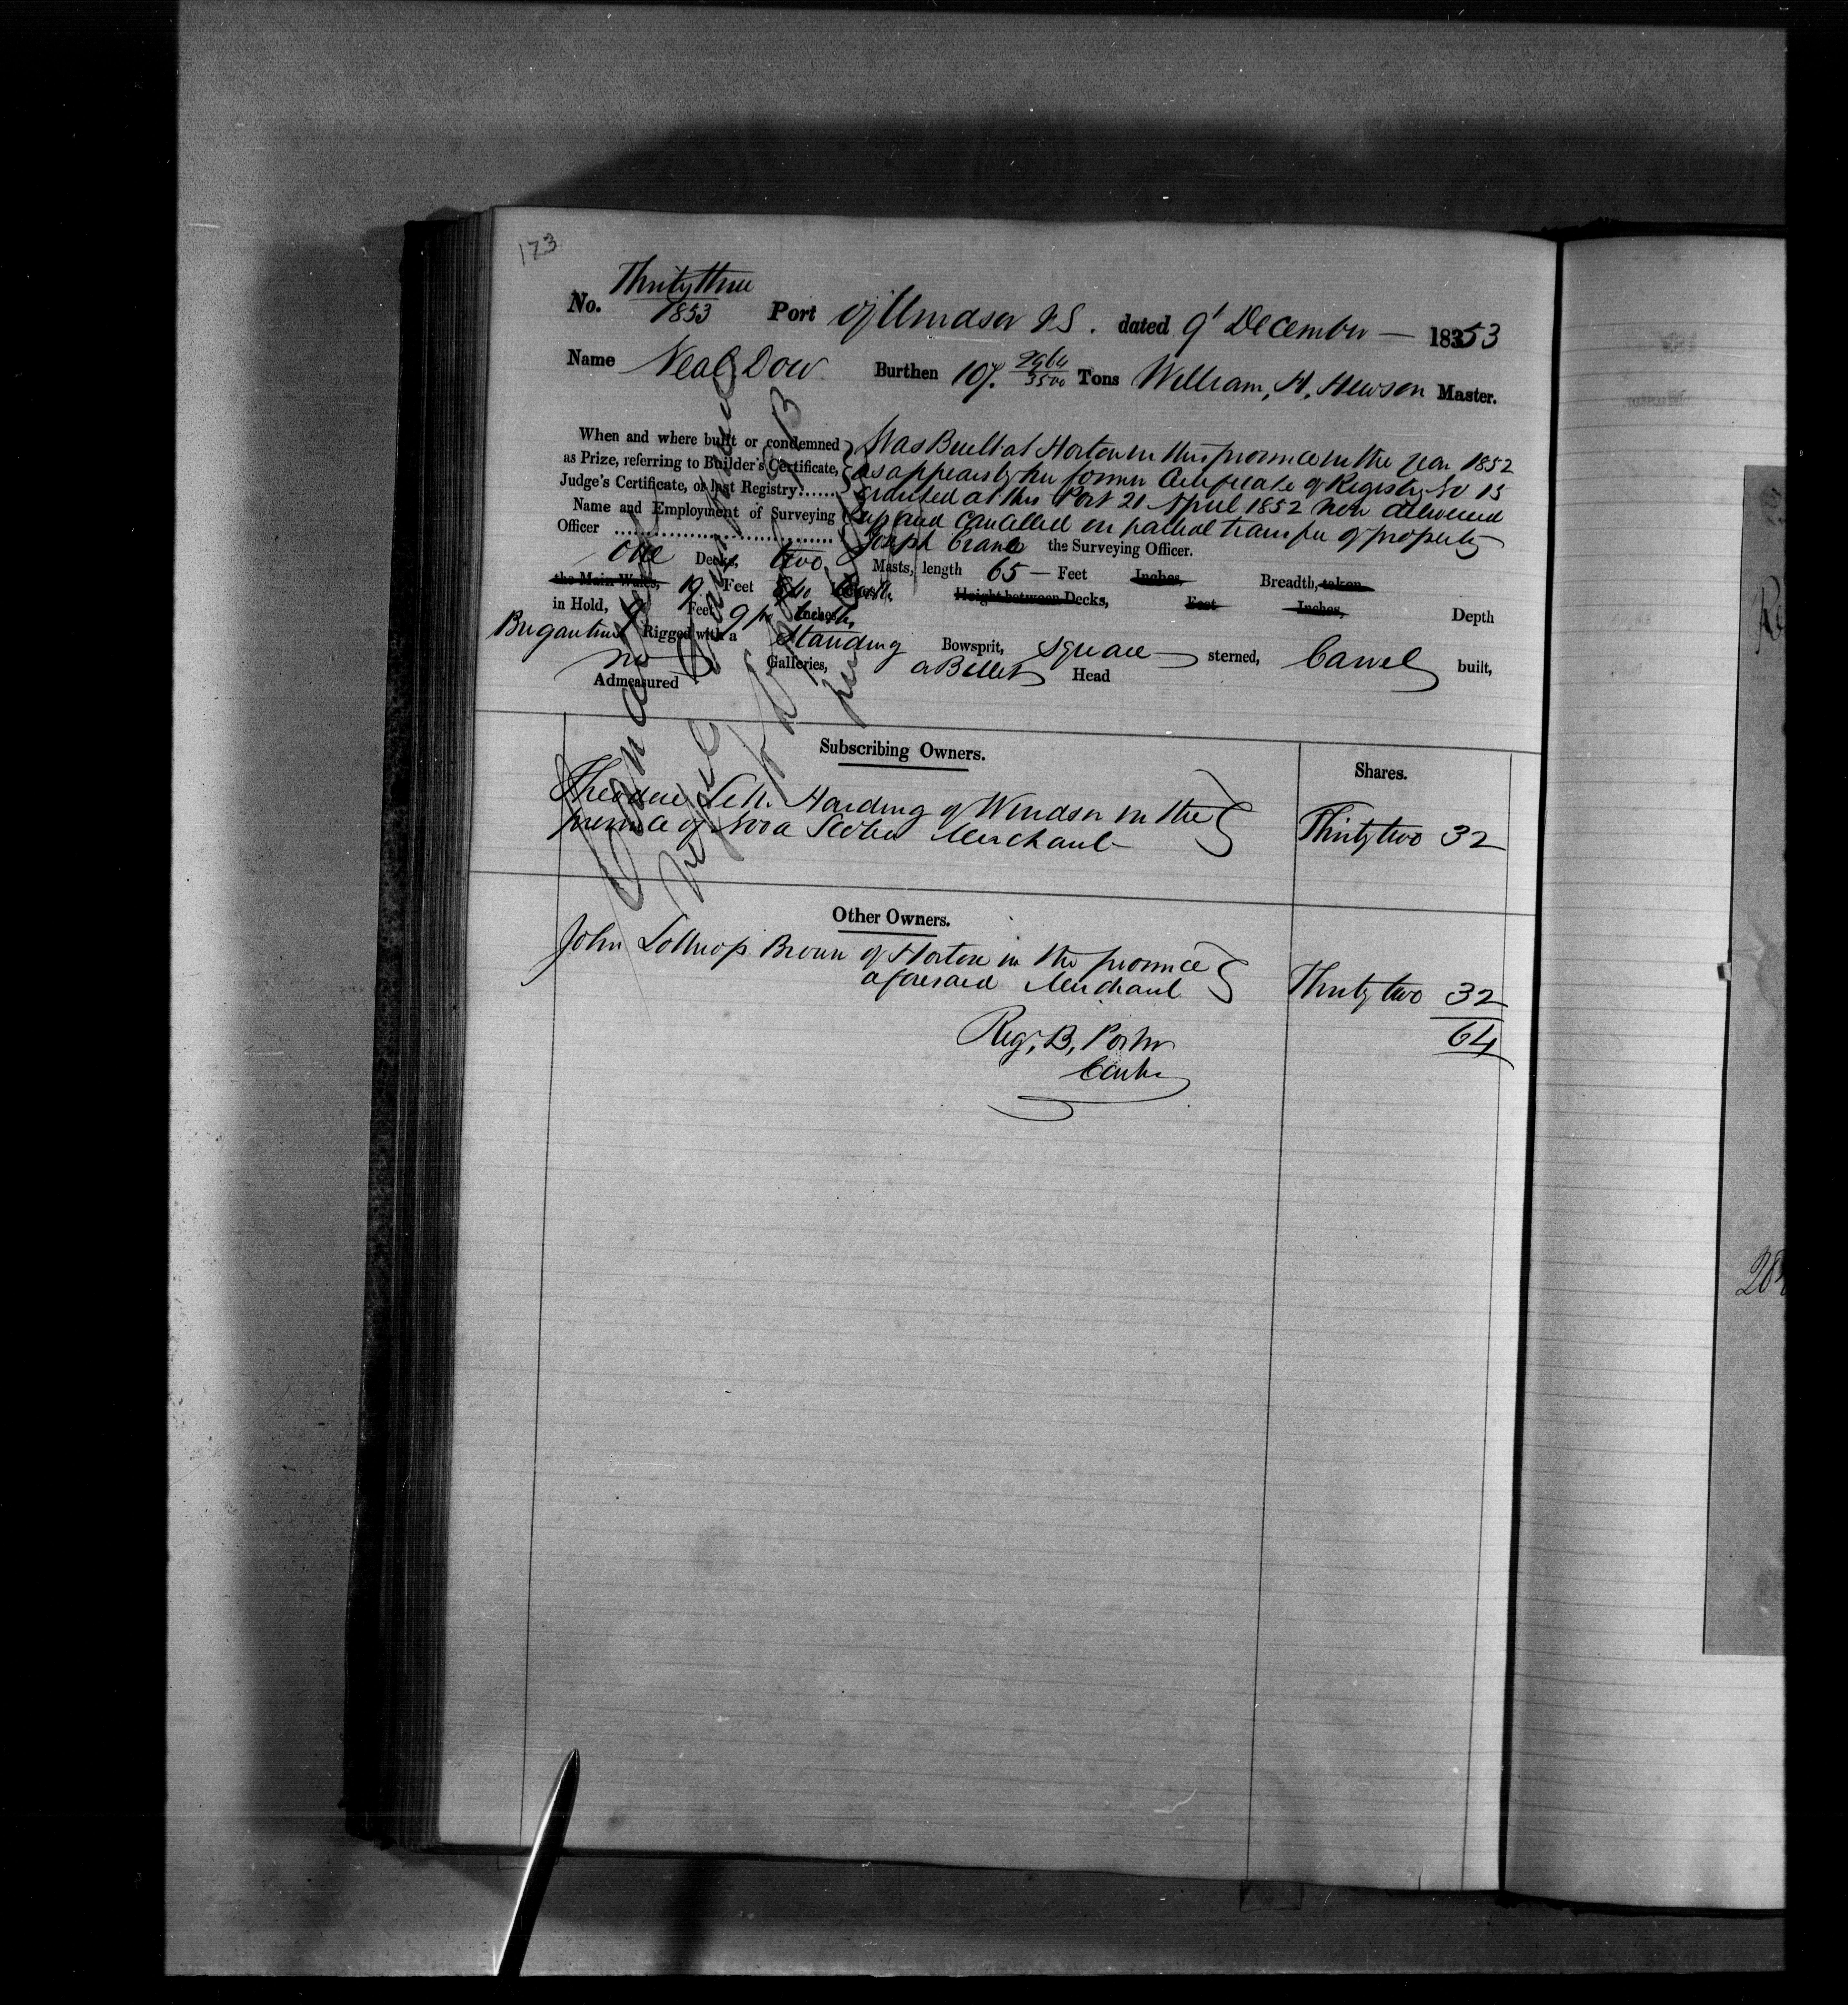 173
No. Thirty three
1853 Port of Windsor N.S. dated 9' December — 18353
Name Neal Dow Burthen 107 2964/3500 Tons William, H, Hewson Master.
When and where built or condemned Was Built at Horton in this province in the year 1852
as Prize, referring to Builder's Certificate, as appears by her former Certificate of Registry No 15
Judge's Certificate, or last Registry...... granted at this Port 21 April 1852 now delivered
Name and Employment of Surveying up and cancelled on partial transfer of property
Officer .................................. Joseph Crane the Surveying Officer.
One Decks, two Masts, length 65 — Feet Inches, Breadth, taken
the Main Wales, 19 Feet 8/10 Inches, Height between Decks, Feet Inches, Depth
in Hold, 9 Feet 9/10 Inches,
Brigantine Rigged with a Standing Bowsprit, square sterned, Carvel built,
no Galleries, a Billet Head
Admeasured
Subscribing Owners.
Shares.
Theodore S. Harding of Windsor in the
province of Nova Scotia Merchant
Thirty two 32
Other Owners.
John Lothrop Brown of Horton in the province
aforesaid Merchant
Thirty two 32
64
Reg, B, Porter